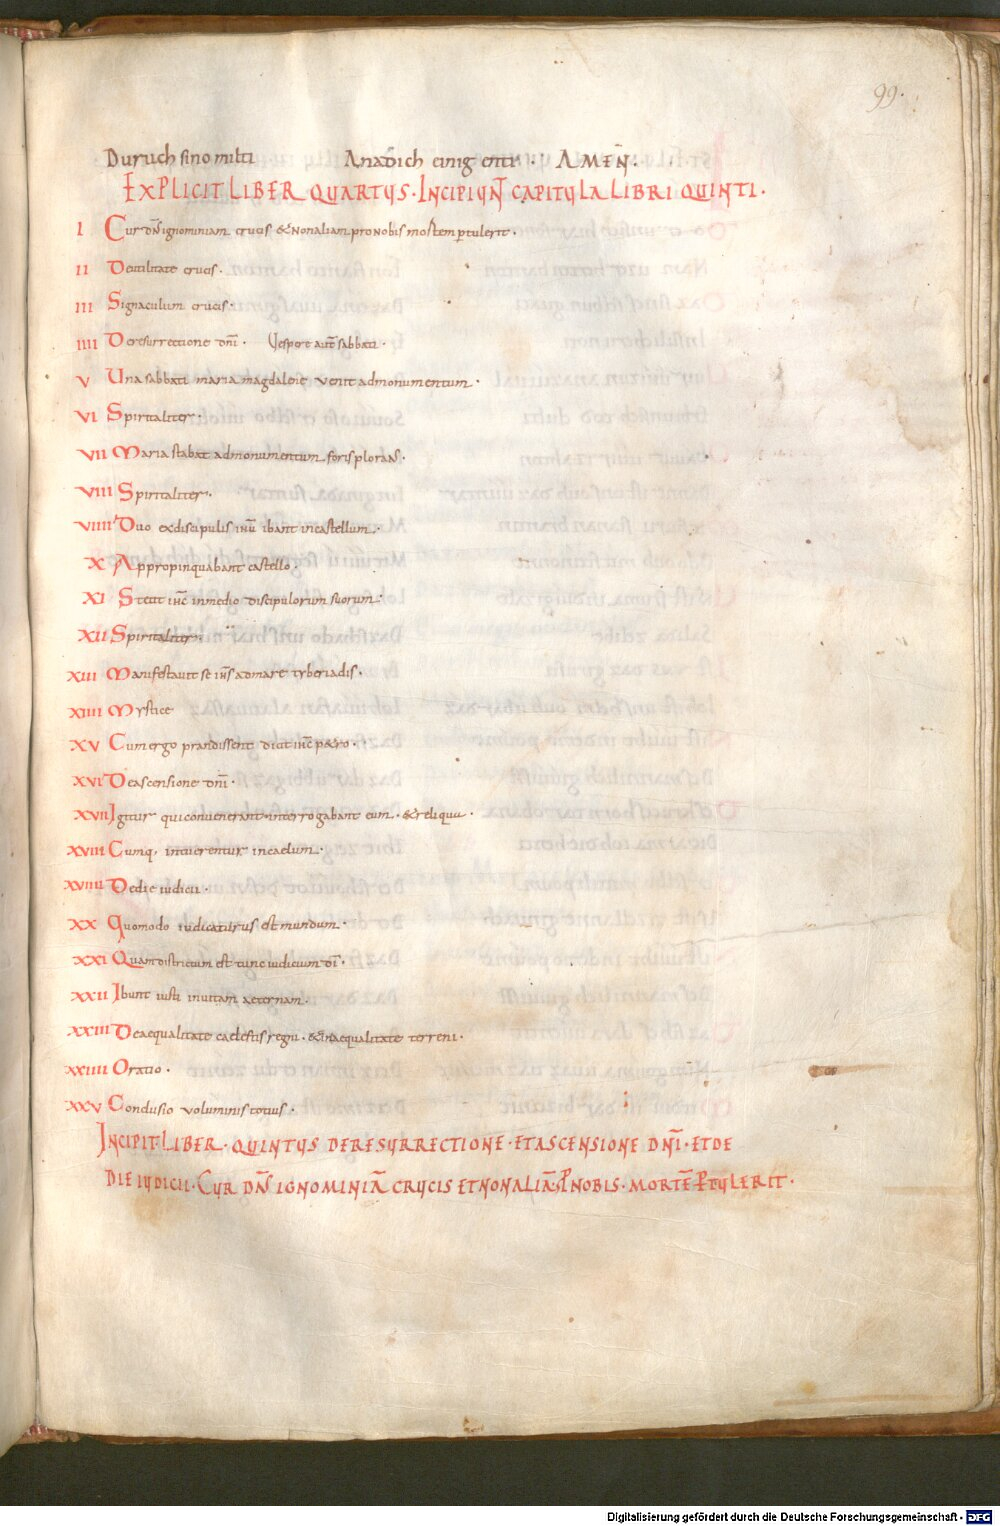 99.
Duruch sino milti Anadich einig enti. AMEN.
EXPLICIT LIBER QUARTUS. INCIPIUNT CAPITULA LIBRI QUINTI.
I Cur dn̄s ignominiam crucis & non aliam pro nobis mortem ptulerit.
II De utilitate crucis.
III Signaculum crucis.
IIII De resurrectione dn̄i. Vespere aut̄ sabbati.
V Una sabbati maria magdalene venit ad monumentum.
VI Spiritaliter.
VII Maria stabat ad monumentum foris plorans.
VIII Spiritaliter.
VIIII Duo ex discipulis ihū ibant in castellum.
X Appropinquabant castello.
XI Stetit ihc̄ in medio discipulorum suorum.
XII Spiritaliter.
XIII Manifestavit se ih̄s ad mare tyberiadis.
XIIII Mystice
XV Cum ergo prandissent dicit ihc̄ p&ro.
XVI De ascensione dn̄i.
XVII Igitur qui convenerant interrogabant eum. & reliqua.
XVIII Cumq; intuerentur in caelum.
XVIIII De die iudicii.
XX Quomodo iudicaturus est mundum.
XXI Quam districtum est tunc iudicium dī.
XXII Ibunt iusti in vitam aeternam.
XXIII De aequalitate caelestis regni. & inaequalitate terreni.
XXIIII Oratio.
XXV Conclusio voluminis totius.
INCIPIT LIBER. QUINTUS DE RESURRECTIONE. ET ASCENSIONE DN̄I. ET DE
DIE IUDICII. CUR DN̄S IGNOMINIĀ CRUCIS ET NON ALIĀ P̄ NOBIS. MORTĒ P̄TULERIT.
Digitalisierung gefördert durch die Deutsche Forschungsgemeinschaft - DFG